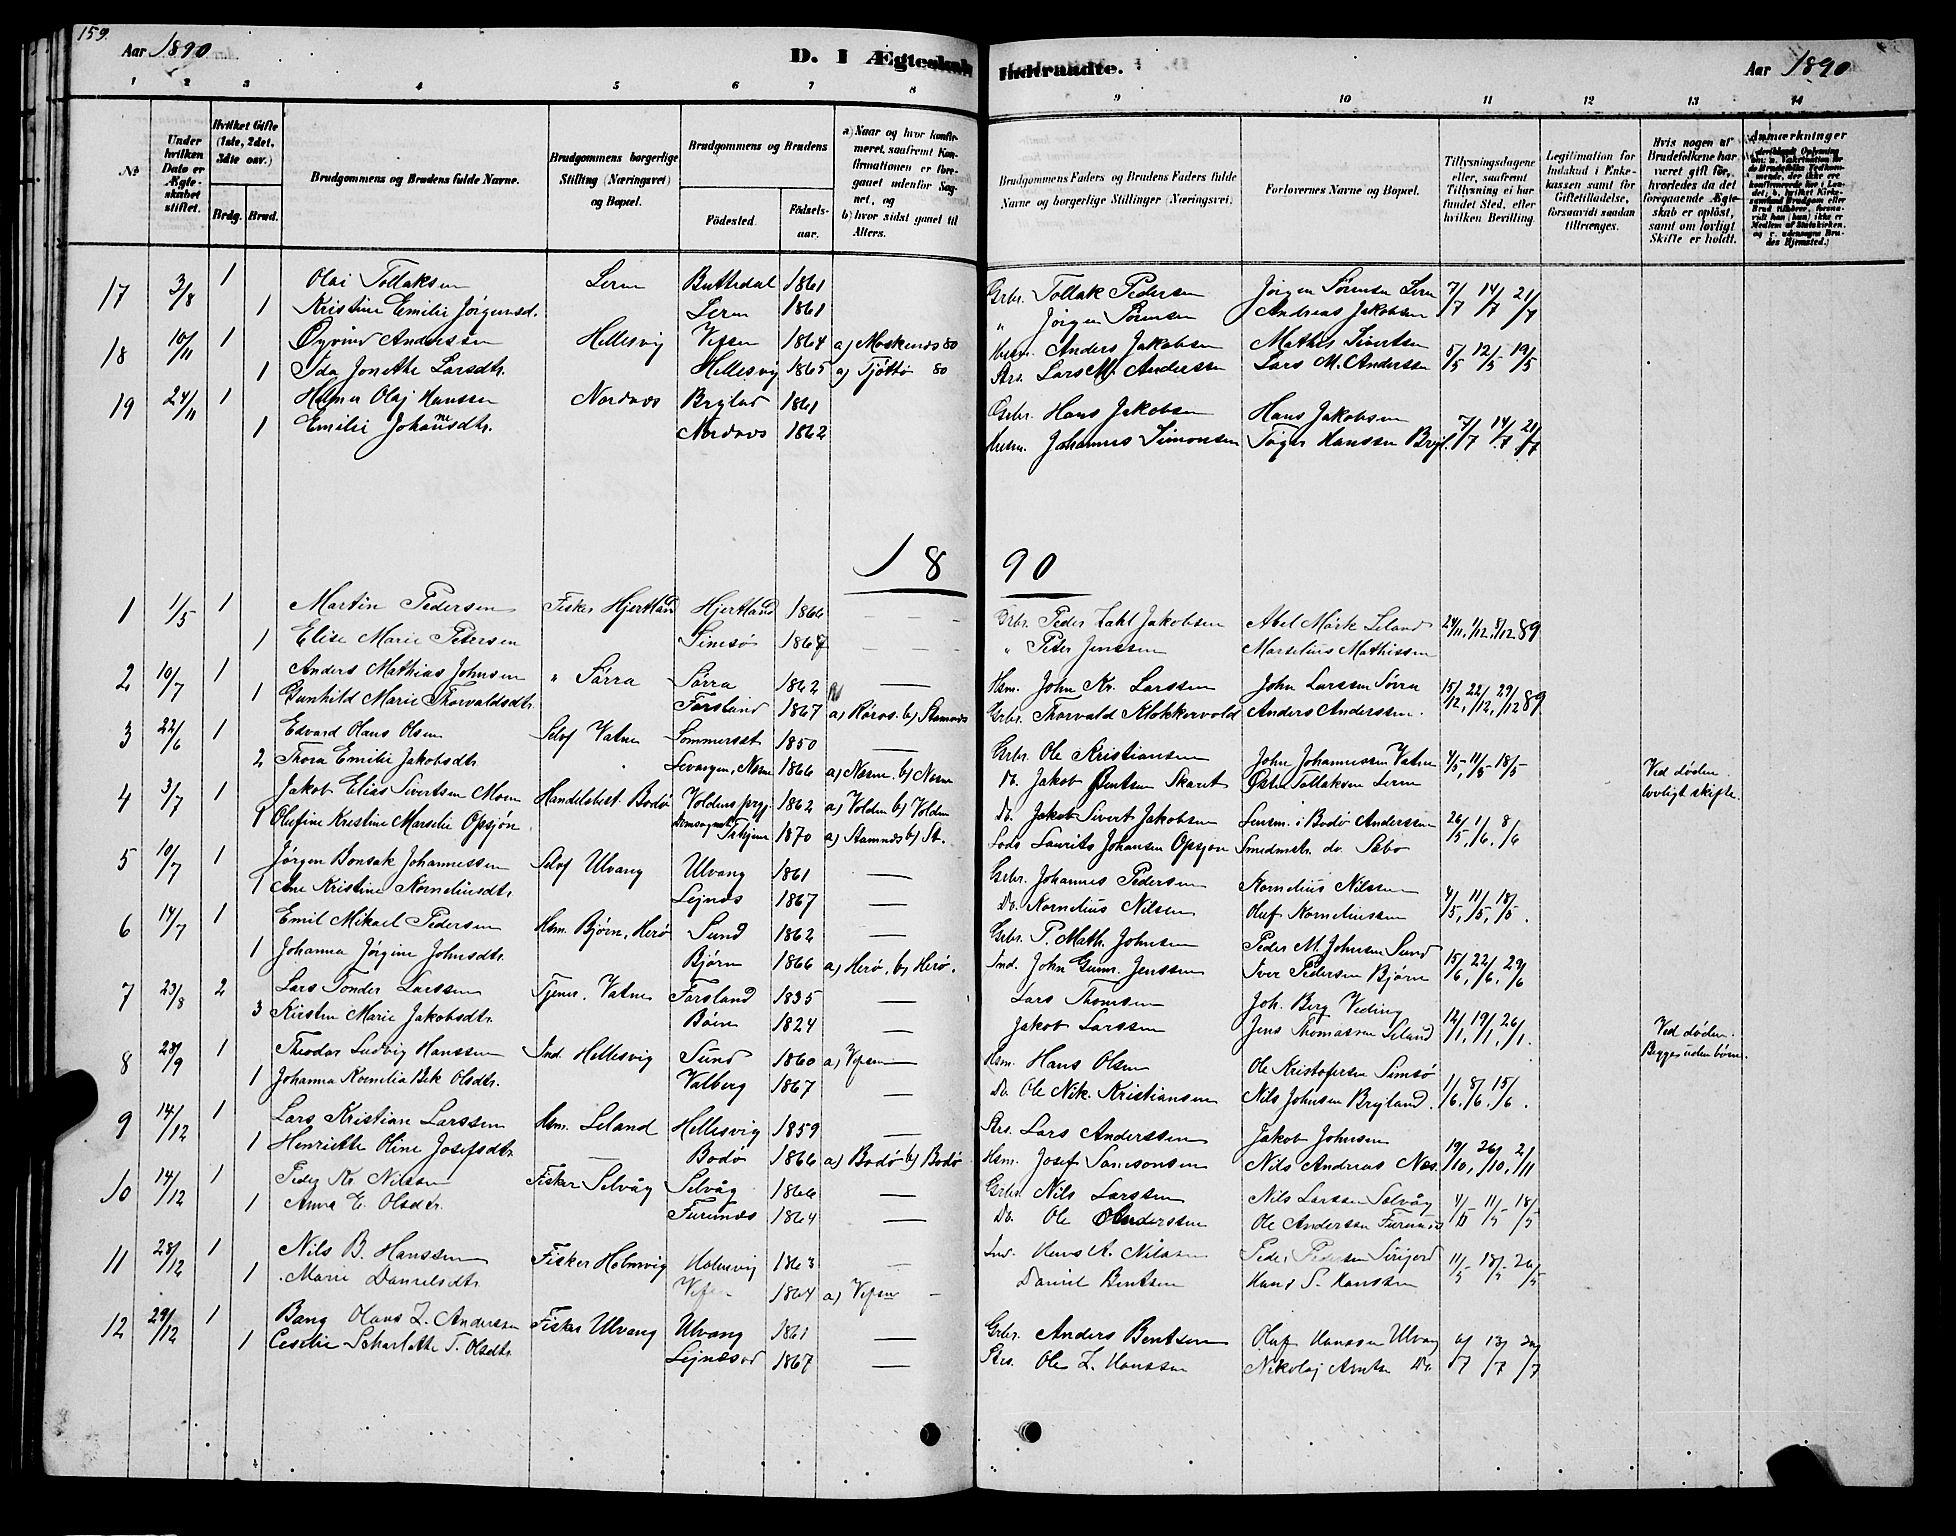 159.
Aar 1890
D. I Ægteskab Indtraadte.
Aar 1890
1 2 3 4 5 6 7 8 9 10 11 12 13 14
№
Under hvilken Dato er Ægteskabet stiftet.
Hvilket Gifte (1ste, 2det, 3die osv.)
Brdg. Brud.
Brudgommens og Brudens fulde Navne.
Brudgommens borgerlige Stilling (Næringsvei) og Bopæl.
Brudgommens og Brudens
Fødested. Fødselsaar.
a) Naar og hvor konfirmeret, saafremt Konfirmationen er foregaaet udenfor Sognet, og b) hvor sidst gaaet til Alters.
Brudgommens Faders og Brudens Faders fulde Navne og borgerlige Stillinger (Næringsvei).
Forlovernes Navne og Bopæl.
Tillysningsdagene eller, saafremt Tillysning ei har fundet Sted, efter hvilken Bevilling.
Legitimation for Indskud i Enkekassen samt for Giftetilladelse, forsaavidt saadan tiltrænges.
Hvis nogen af Brudefolkene har været gift før, hvorledes da det foregaaende Ægteskab er opløst, samt om lovligt Skifte er holdt.
Anmærkninger
17 3/8 1 Olai Tollaksen Lerm Buttedal 1861 Grbr. Tollak Pedersen Jörgen Sörensen Lerm 7/7 14/7 21/7
1 Kristine Emilie Jörgensd. Lerm 1861 " Jörgen Sörensen Andreas Jakobsen
18 10/11 1 Öyvind Anderssen Hellesvig Vefsen 1864 a) Moskenes 80 Husm. Anders Jakobsen Mathis Sivertsen 5/5 12/5 19/5
1 Ida Jonette Larsdtr. Hellesvig 1865 a) Tjöttö 80 Strs. Lars M. Anderssen Lars M. Anderssen
19 24/11 1 Helmer Olaj Hanssen Nordaas 1861 Grbr. Hans Jakobsen Hans Jakobsen 7/7 14/7 21/7
1 Emilie Johannedtr. Nordaas 1862 Husm. Johannes Simonsen Töger Hanssen
1890
1 1/5 1 Martin Pedersen Fisker Hjertland Hjertland 1866 Grbr. Peder Zahl Jakobsen Abel Mörk Leland 24/11, 1/12, 8/12 89
1 Elise Marie Petersen Simsö 1867 " Peter Jenssen Marselius Mathissen
2 10/7 1 Anders Mathias Johnsen " Sörra Sörra 1862 Hsm. John Kr. Larssen John Larssen Sörra 15/12, 22/12, 29/12 89
1 Gunhild Marie Thorvaldsdtr. Forsland 1867 a) Röros b) Stamnes Grbr. Thorvald Klokkervold Anders Anderssen.
3 22/6 1 Edvard Hans Olsen Selvf Vatne Sommerset 1850 Grbr. Ole Kristiansen John Johannessen Vatne 4/5, 11/5 18/5
2 Thora Emilie Jakobsdtr. Levangen, Nesne 1866 a) Nesne. b) Nesne Do. Jakob Bentsen Skaret Östen Tollaksen Lerm Ved döden lovligt skifte.
4 3/7 1 Jakob Elias Sivertsen Moen Handelsbest. Bodö Voldens prgj. 1862 a) Volden b) Volden Do. Jakob Sivert Jakobsen Lensm. i Bodö Anderssen 26/5, 1/6, 8/6
1 Olufine Kristine Marselie Opsjön 1870 a) Stamnes b) St. Lods Laurits Johansen Opsjön Smedmstr. do. Sæbö
5 10/7 1 Jörgen Bonsak Johannessen Selvf Ulvang Ulvang 1861 Grbr. Johannes Pedersen Kornelius Nilssen 4/5, 11/5, 18/5.
1 Ane Kristine Korneliusdtr. Lejnes 1867 Do. Kornelius Nilsen Oluf Korneliussen
6 14/7 1 Emil Mikael Pedersen Hsm. Björn, Herö Sund 1862 Grbr. P. Math. Johnsen Peder M. Johnsen Sund 15/6, 22/6, 29/6
1 Johanna Jörgine Johnsdtr. Björn 1866 a) Herö, b) Herö. Ind. John Gunnr. Jenssen Iver Pedersen Björn
7 23/8 2 Lars Tonder Larssen Tjener. Vatne Forsland 1835 Lars Thomsen Joh. Berg Veding 12/1, 19/1, 26/1.
3 Kirsten Marie Jakobsdtr. Böen 1824 Jakob Larssen Jens Thomassen Leland Ved döden. Begge uden börn.
8 28/9 1 Theodor Ludvig Hanssen Ind. Hellesvig Sund 1860 a) Vefsen Hsm. Hans Olsen Ole Kristofersen Simsö 1/6, 8/6, 15/6.
1 Johanna Kornelia Bek Olsdtr. Valberg 1867 Do. Ole Nik. Kristiansen Nils Johnsen Brejland.
9 14/12 1 Lars Kristian Larssen Hsm. Leland Hellesvig 1859 Strs. Lars Anderssen Jakob Johnsen 19/10, 26/10, 2/11
1 Henriette Oline Josefsdtr. Bodö 1866 a) Bodö b) Bodö Hsm. Josef Samsonsen Nils Andreas Næs.
10 14/12 1 Peder Kr. Nilssen Fisker Selvåg Selvåg 1866 Grbr. Nils Larssen Nils Larssen Selvåg 4/5 11/5 18/5
1 Anna E. Olsdtr. Furunes 1864 Do. Ole Anderssen Ole Anderssen Furunes
11 28/12 1 Nils B. Hanssen Fisker Holmvig Holmvig 1863 Ind. Hans A. Nilssen Peder Pedersen 11/5 18/5 26/5
1 Marie Danielsdtr. Vefsn 1864 a) Vefsn Daniel Bentsen Hans S. Hanssen
12 29/12 1 Bang Olaus Z. Anderssen Fisker Ulvang Ulvang 1861 Grbr. Anders Bentsen Oluf Hanssen Ulvang 6/7 13/7 20/7
1 Cecilie Scharlotte T. Olsdtr. 1867 Strs. Ole Z. Hanssen Nikolaj Arntsen Do.